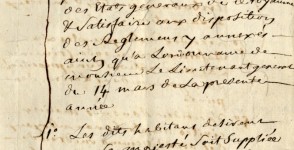 des Etats généraux de ce Royaume
& Satisfaire aux dispositions
des Reglemens y annexés
ainsi qu'a L'ordonnance de
monsieur Le Lieutenant general
du 14 mars de La presente
année
1° Les dits habitans desirent
Sa majesté Soit Suppliée